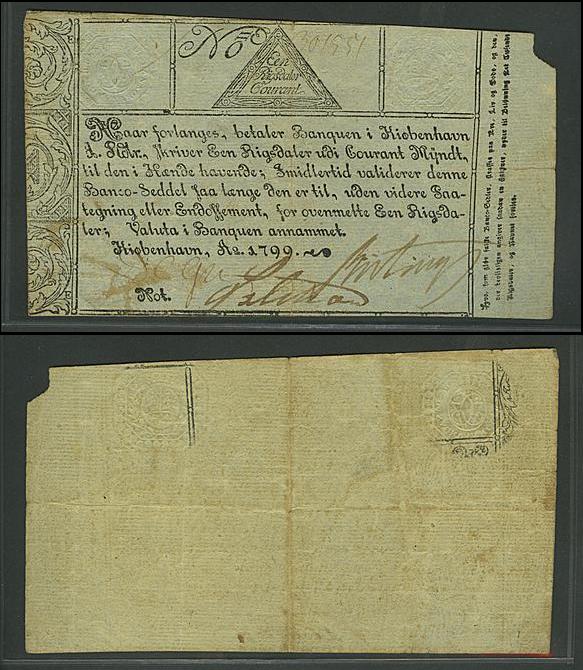 No
301551
Een
Rigsdaler
Courant
Naar forlanges, betaler Banquen i Kiøbenhavn
1. Rdlr. skriver Een Rigsdaler udi Courant Myndt,
til den i Hænde havende; Imidlertid validerer denne
Banco-Seddel saa længe den er til, uden videre Paa-
tegning eller Endossement, for ovenmelte Een Rigsda-
ler; Valuta i Banquen annammet.
Kiøbenhavn, Ao. 1799.
Not.
Hvo, som giør falske Banco-Sedler, straffes paa Ære, Liv og Gods, og den,
der troeligen angiver saadan en